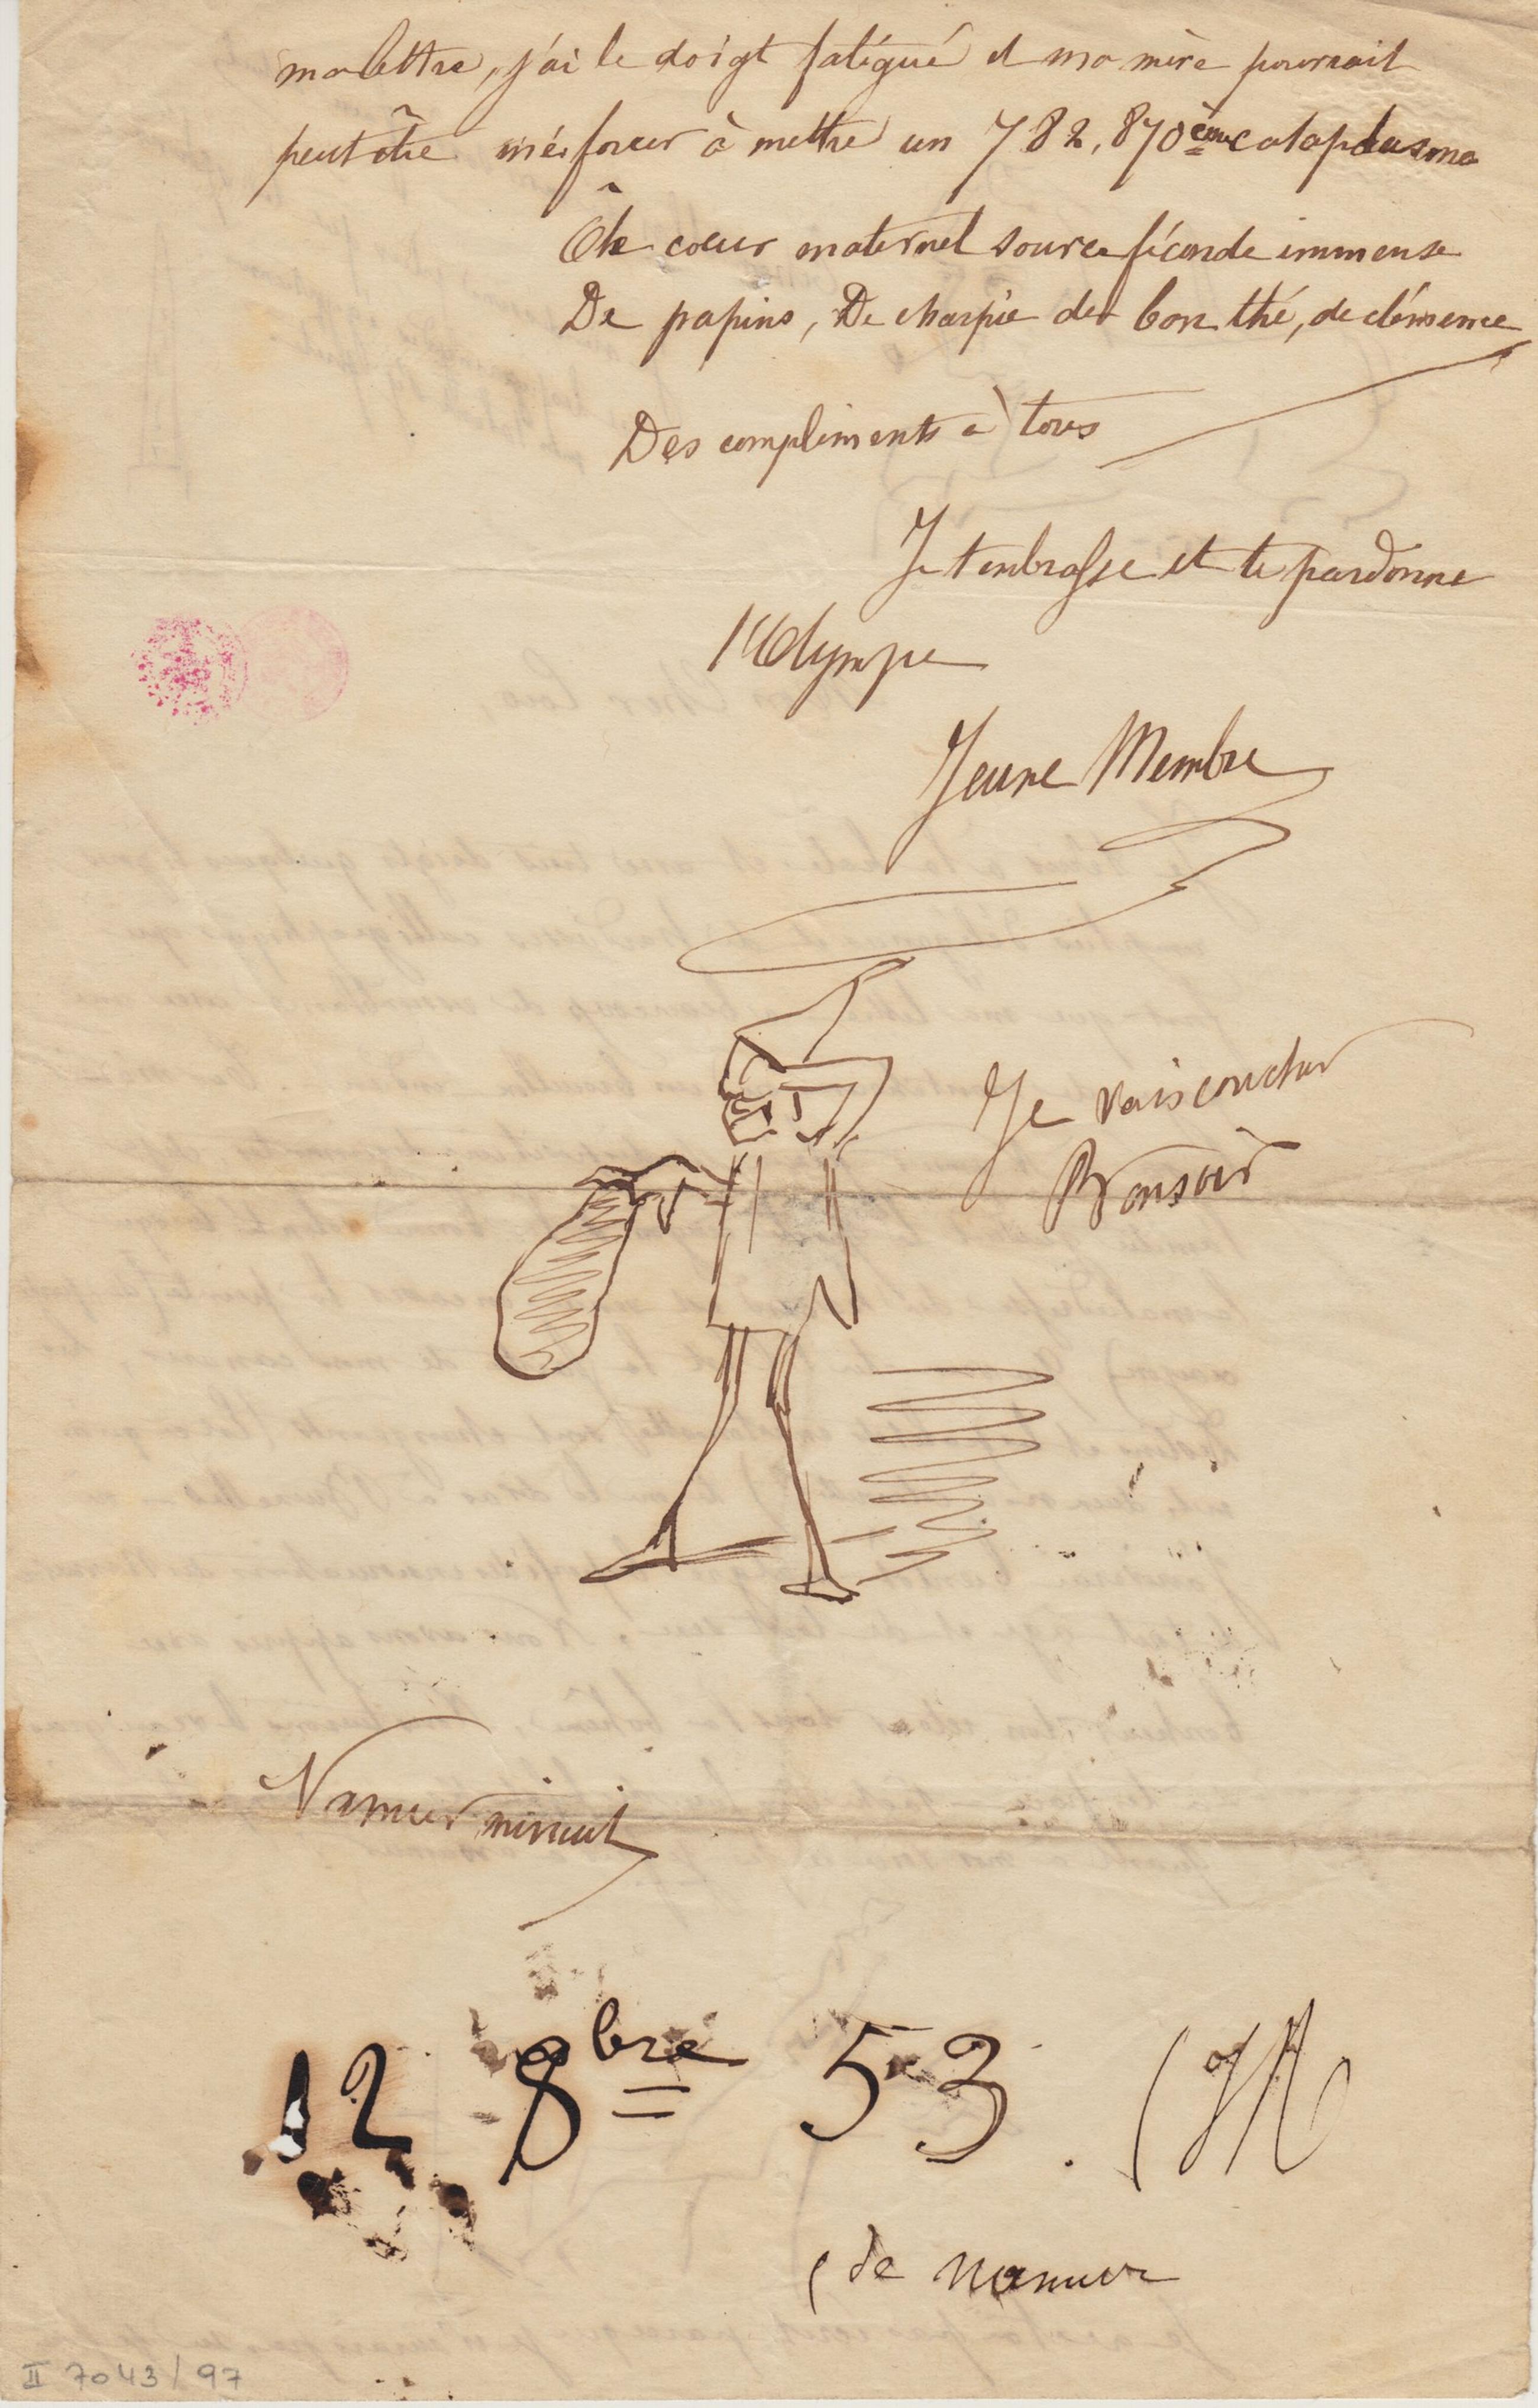 ma lettre, j'ai le doigt fatigué et ma mère pourrait
peut être m'éforcer à mettre un 782,870ème cataplasme
Oh coeur maternel source féconde immense
De papins, De charpie de bon thé, de clémence
Des compliments à tous
Je t'embrasse et te pardonne
l'Olympe
Jeune Membre
Je vais coucher
Bonsoir
Namur minuit
12 8bre 53.
(de Namur
II 7043/97